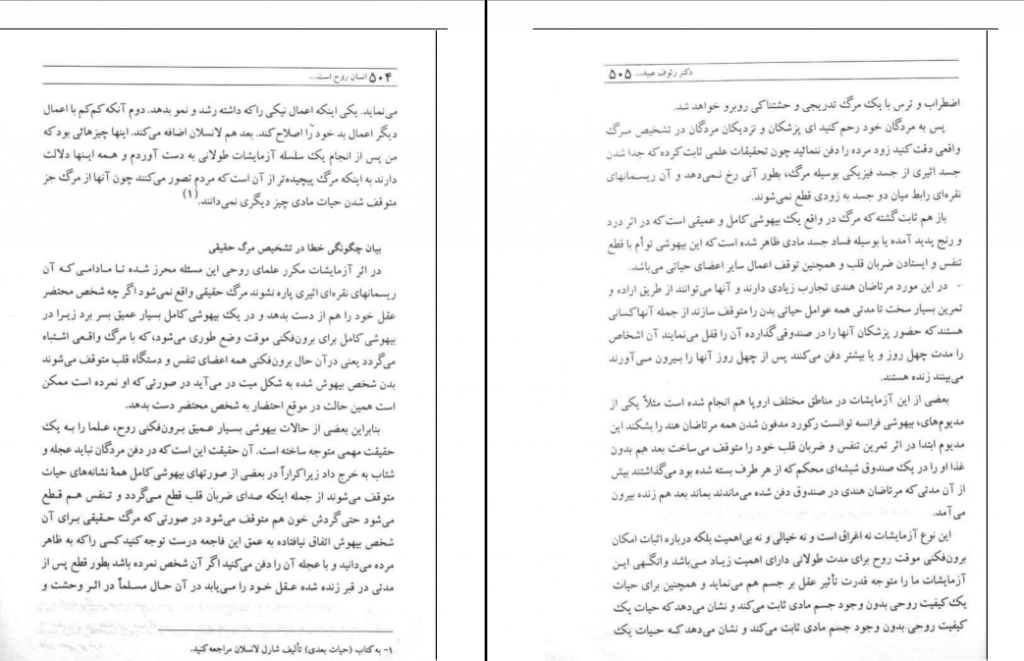 ۵۰۴ انسان روح است...
می‌نماید. یکی اینکه اعمال نیکی را که داشته رشد و نمو بدهد. دوم آنکه کم‌کم با اعمال
دیگر اعمال بد خود را اصلاح کند. بعد هم لانسلان اضافه می‌کند. اینها چیزهائی بود که
من پس از انجام یک سلسله آزمایشات طولانی به دست آوردم و همه اینها دلالت
دارند به اینکه مرگ پیچیده‌تر از آن است که مردم تصور می‌کنند چون آنها از مرگ جز
متوقف شدن حیات مادی چیز دیگری نمی‌دانند.(۱)
بیان چگونگی خطا در تشخیص مرگ حقیقی
در اثر آزمایشات مکرر علمای روحی این مسئله محرز شده تا مادامی که آن
ریسمانهای نقره‌ای اثیری پاره نشوند مرگ حقیقی واقع نمی‌شود اگر چه شخص محتضر
عقل خود را هم از دست بدهد و در یک بیهوشی کامل بسیار عمیق بسر برد زیرا در
بیهوشی کامل برای برون‌فکنی موقت وضع طوری می‌شود، که با مرگ واقعی اشتباه
می‌گردد یعنی در آن حال برون‌فکنی همه اعضای تنفس و دستگاه قلب متوقف می‌شوند
بدن شخص بیهوش شده به شکل میت در می‌آید در صورتی که او نمرده است ممکن
است همین حالت در موقع احتضار به شخص محتضر دست بدهد.
بنابراین بعضی از حالات بیهوشی بسیار عمیق برون‌فکنی روح، علما را به یک
حقیقت مهمی متوجه ساخته است. آن حقیقت این است که در دفن مردگان نباید عجله و
شتاب به خرج داد زیرا کراراً در بعضی از صورتهای بیهوشی کامل همهٔ نشانه‌های حیات
متوقف می‌شوند از جمله اینکه صدای ضربان قلب قطع می‌گردد و تنفس هم قطع
می‌شود حتی گردش خون هم متوقف می‌شود در صورتی که مرگ حقیقی برای آن
شخص بیهوش اتفاق نیافتاده به عمق این فاجعه درست توجه کنید کسی را که به ظاهر
مرده می‌دانید و با عجله آن را دفن می‌کنید اگر آن شخص نمرده باشد بطور قطع پس از
مدتی در قبر زنده شده عقل خود را می‌یابد در آن حال مسلماً در اثر وحشت و
۱- به کتاب (حیات بعدی) تألیف شارل لانسلان مراجعه کنید.
دکتر رئوف عبید... ۵۰۵
اضطراب و ترس با یک مرگ تدریجی و حشتناکی روبرو خواهد شد.
پس به مردگان خود رحم کنید ای پزشکان و نزدیکان مردگان در تشخیص مرگ
واقعی دقت کنید زود مرده را دفن ننمائید چون تحقیقات علمی ثابت کرده که جدا شدن
جسد اثیری از جسد فیزیکی بوسیله مرگ، بطور آنی رخ نمی‌دهد و آن ریسمانهای
نقره‌ای رابط میان دو جسد به زودی قطع نمی‌شوند.
باز هم ثابت گشته که مرگ در واقع یک بیهوشی کامل و عمیقی است که در اثر درد
و رنج پدید آمده یا بوسیله فساد جسد مادی ظاهر شده است که این بیهوشی توأم با قطع
تنفس و ایستادن ضربان قلب و همچنین توقف اعمال سایر اعضای حیاتی می‌باشد.
در این مورد مرتاضان هندی تجارب زیادی دارند و آنها می‌توانند از طریق اراده و
تمرین بسیار سخت تا مدتی همه عوامل حیاتی بدن را متوقف سازند از جمله آنها کسانی
هستند که حضور پزشکان آنها را در صندوقی گذارده آن را قفل می‌نمایند آن اشخاص
را مدت چهل روز و یا بیشتر دفن می‌کنند پس از چهل روز آنها را بیرون می‌آورند
می‌بینند زنده هستند.
بعضی از این آزمایشات در مناطق مختلف اروپا هم انجام شده است مثلاً یکی از
مدیوم‌های، بیهوشی فرانسه توانست رکورد مدفون شدن همه مرتاضان هند را بشکند این
مدیوم ابتدا در اثر تمرین تنفس و ضربان قلب خود را متوقف می‌ساخت بعد هم بدون
غذا او را در یک صندوق شیشه‌ای محکم که از هر طرف بسته شده بود می‌گذاشتند بیش
از آن مدتی که مرتاضان هندی در صندوق دفن شده می‌ماندند بماند بعد هم زنده بیرون
می‌آمد.
این نوع آزمایشات نه اغراق است و نه خیالی و نه بی‌اهمیت بلکه درباره اثبات امکان
برون‌فکنی موقت روح برای مدت طولانی دارای اهمیت زیاد می‌باشد وانگهی این
آزمایشات ما را متوجه قدرت تأثیر عقل بر جسم هم می‌نماید و همچنین برای حیات
یک کیفیت روحی بدون وجود جسم مادی ثابت می‌کند و نشان می‌دهد که حیات یک
کیفیت روحی بدون وجود جسم مادی ثابت می‌کند و نشان می‌دهد که حیات یک